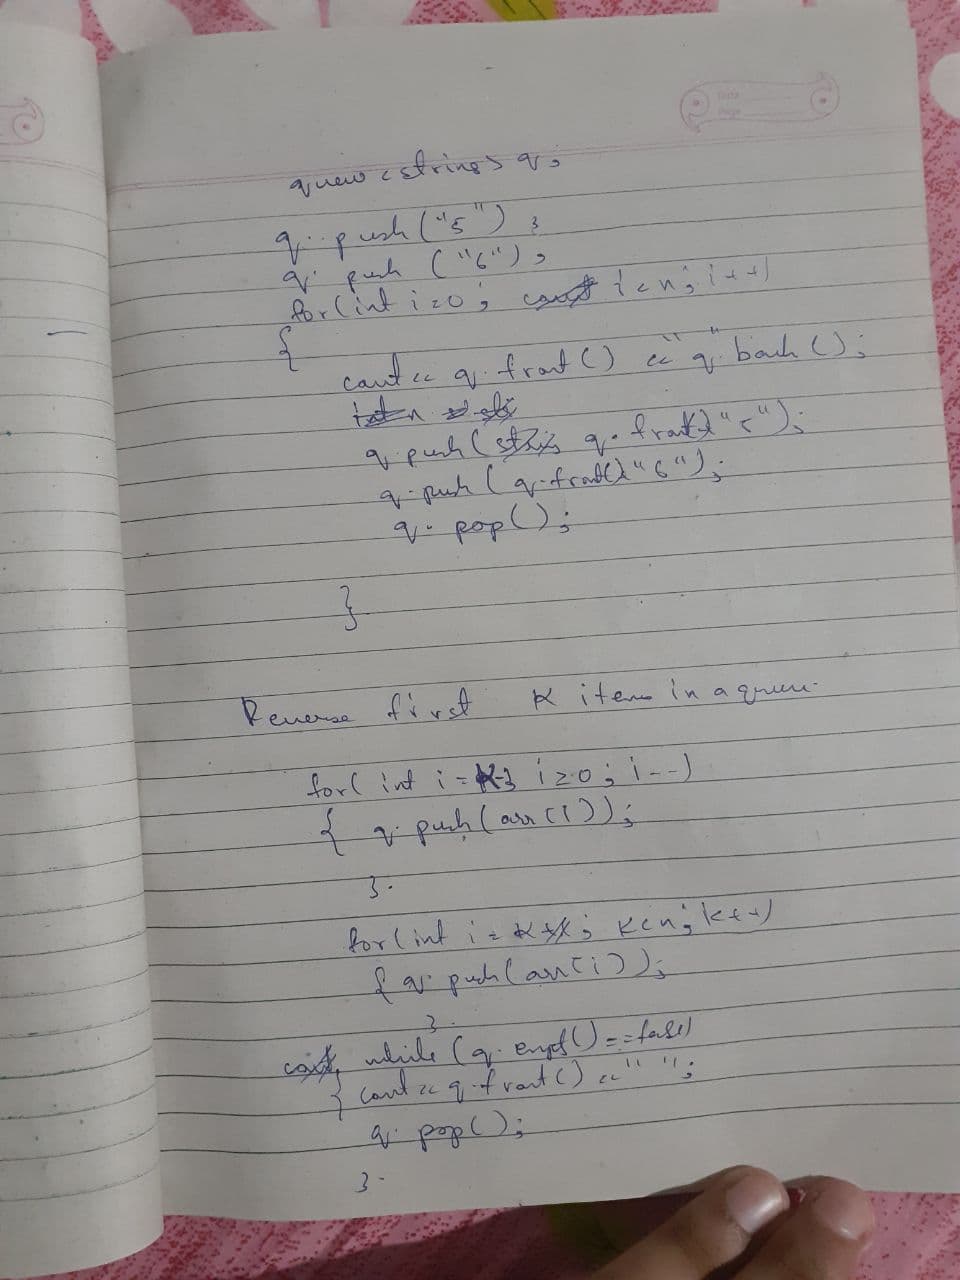 Date
Page
queue <string> q;
q. push("5");
q. push ("6");
for(int i=0; i<n; i++)
{
cout<< q.front() << " " q.back();
q.push( q.front() "5");
q.push( q.front() "6");
q. pop();
}
Reverse first K items in a queue.
for( int i=K; i≥0; i--)
{ q.push(arr[i]);
}.
for(int i=K; K<n; k++)
{ q. push(arr[i]);
}.
while (q. empt()==false)
{ cout << q.front() << " ";
q. pop();
}.